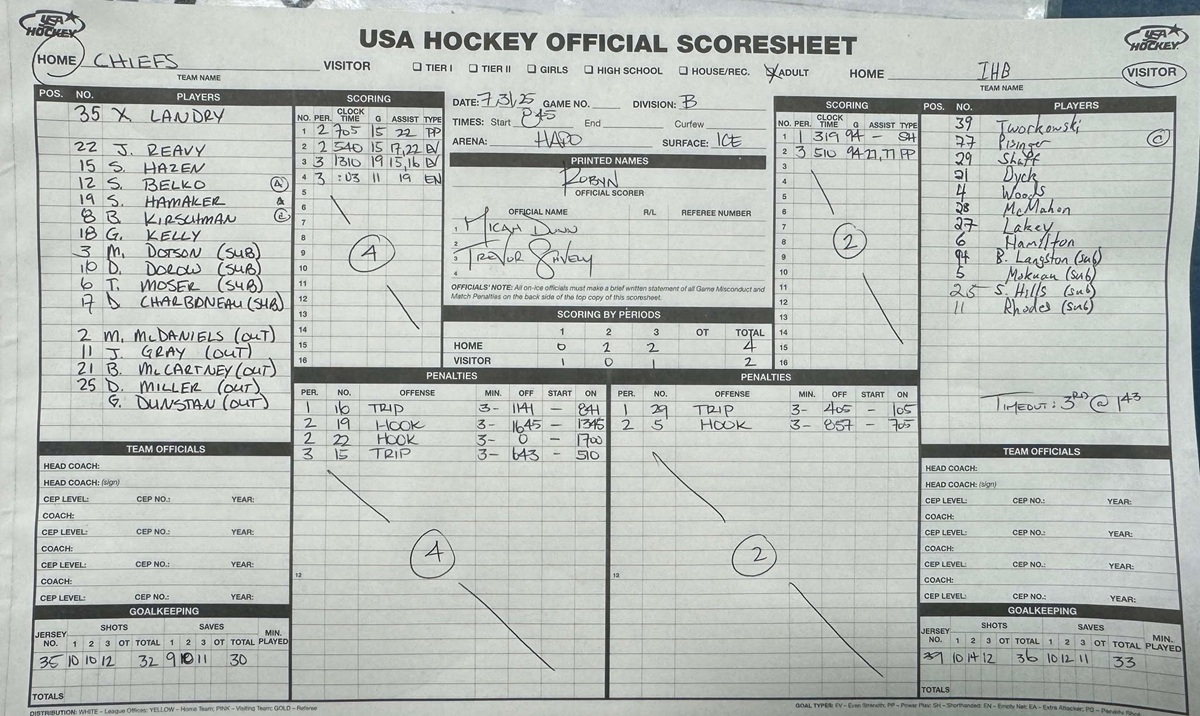 USA HOCKEY
USA HOCKEY OFFICIAL SCORESHEET
USA HOCKEY
HOME CHIEFS VISITOR
TEAM NAME
☐ TIER I ☐ TIER II ☐ GIRLS ☐ HIGH SCHOOL ☐ HOUSE/REC. ☒ ADULT
HOME IHB VISITOR
TEAM NAME
POS. NO. PLAYERS
35 X LANDRY
22 J. REAVY
15 S. HAZEN
12 S. BELKO A
19 S. HAMAKER A
8 B KIRSCHMAN C
18 G. KELLY
3 M. DOTSON (SUB)
10 D. DOROW (SUB)
6 T. MOSER (SUB)
17 D CHARBONEAU (SUB)
2 M. McDANIELS (OUT)
11 J. GRAY (OUT)
21 B. McCARTNEY (OUT)
25 D. MILLER (OUT)
G. DUNSTAN (OUT)
SCORING
NO. PER. CLOCK TIME G ASSIST TYPE
1 2 705 15 22 PP
2 2 540 15 17,22 EV
3 3 1310 19 15,16 EV
4 3 :03 11 19 EN
5
6
7
8
9
10
11
12
13
14
15
16
4
DATE: 7/31/25 GAME NO. DIVISION: B
TIMES: Start 845 End Curfew
ARENA: HAPO SURFACE: ICE
PRINTED NAMES
ROBYN
OFFICIAL SCORER
OFFICIAL NAME R/L REFEREE NUMBER
1 MICAH DUNN
2
3 TREVOR
4
OFFICIALS' NOTE: All on-ice officials must make a brief written statement of all Game Misconduct and
Match Penalties on the back side of the top copy of this scoresheet.
SCORING BY PERIODS
1 2 3 OT TOTAL
HOME 0 2 2 4
VISITOR 1 0 1 2
SCORING
NO. PER. CLOCK TIME G ASSIST TYPE
1 1 319 94 - SH
2 3 510 94 21,77 PP
3
4
5
6
7
8
9
10
11
12
13
14
15
16
2
POS. NO. PLAYERS
39 Tworkowski
77 Pisinger C
29 Shaff
21 Dyck
4 Woods
28 McMahon
27 Lakey
6 Hamilton
94 B. Langston (sub)
5 (sub)
25 S. Hills (sub)
11 Rhodes (sub)
TIMEOUT: 3RD @ 143
PENALTIES
PER. NO. OFFENSE MIN. OFF START ON
1 16 TRIP 3- 1141 - 841
2 19 HOOK 3- 1645 - 1345
2 22 HOOK 3- 0 - 1700
3 15 TRIP 3- 643 - 510
4
12
PENALTIES
PER. NO. OFFENSE MIN. OFF START ON
1 29 TRIP 3- 405 - 105
2 5 HOOK 3- 857 - 705
2
13
TEAM OFFICIALS
HEAD COACH:
HEAD COACH: (sign)
CEP LEVEL: CEP NO.: YEAR:
COACH:
CEP LEVEL: CEP NO.: YEAR:
COACH:
CEP LEVEL: CEP NO.: YEAR:
COACH:
CEP LEVEL: CEP NO.: YEAR:
GOALKEEPING
SHOTS SAVES
JERSEY NO. 1 2 3 OT TOTAL 1 2 3 OT TOTAL MIN. PLAYED
35 10 10 12 32 9 10 11 30
TOTALS
TEAM OFFICIALS
HEAD COACH:
HEAD COACH: (sign)
CEP LEVEL: CEP NO.: YEAR:
COACH:
CEP LEVEL: CEP NO.: YEAR:
COACH:
CEP LEVEL: CEP NO.: YEAR:
COACH:
CEP LEVEL: CEP NO.: YEAR:
GOALKEEPING
SHOTS SAVES
JERSEY NO. 1 2 3 OT TOTAL 1 2 3 OT TOTAL MIN. PLAYED
39 10 14 12 36 10 12 11 33
TOTALS
DISTRIBUTION: WHITE - League Offices; YELLOW - Home Team; PINK - Visiting Team; GOLD - Referee
GOAL TYPES: EV - Even Strength; PP - Power Play; SH - Shorthanded; EN - Empty Net; EA - Extra Attacker; PS - Penalty Shot